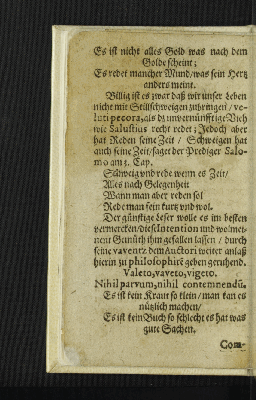 Es ist nicht alles Gold was nach dem
Golde scheint;
Es redet mancher Mund/was sein Hertz
anders meint.
Billig ist es zwar daß wir unser Leben
nicht mit Stillschweigen zubringen/ ve-
luti pecora, als dz unvernünfftige Vieh
wie Salustius recht redet; Jedoch aber
hat Reden seine Zeit / Schweigen hat
auch seine Zeit/saget der Prediger Salo-
mo am 3. Cap.
Schweig und rede wenn es Zeit/
Alles nach Gelegenheit
Wann man aber reden sol
Rede man fein kurtz und wol.
Der günstige Leser wolle es im besten
vermercken/die Intention und wolmei-
nent Gemüth ihm gefallen lassen / durch
seine dem Auctori weiter anlaß
hierin zu philosophirē geben geruhend.
Valeto, vaveto, vigeto.
Nihil parvum, nihil contemnendū.
Es ist kein Kraut so klein / man kan es
nützlich machen/
Es ist kein Buch so schlecht es hat was
gute Sachen.
Com-